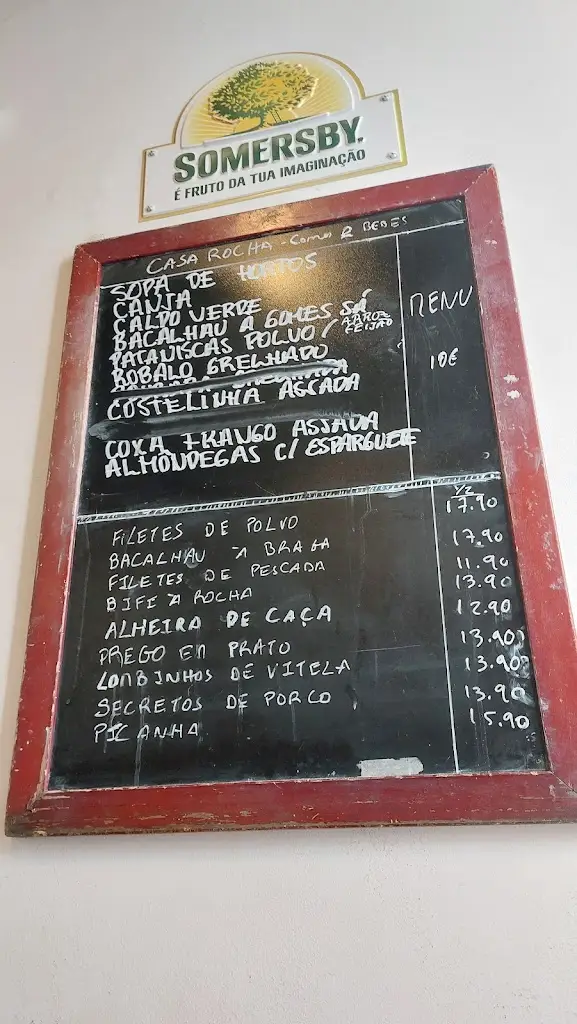 SOMERSBY.
É FRUTO DA TUA IMAGINAÇÃO
CASA ROCHA - Comes & BEBES
SOPA DE HORTOS
CANJA
CALDO VERDE
BACALHAU A GOMES SÁ
PATANISCAS POLVO / ARROZ FEIJÃO
ROBALO GRELHADO
COSTELINHA ASSADA
COXA FRANGO ASSADA
ALMÔNDEGAS C/ ESPARGUETE
MENU
10€
1/2
FILETES DE POLVO 17.90
BACALHAU À BRAGA 17.90
FILETES DE PESCADA 11.90
BIFE À ROCHA 13.90
ALHEIRA DE CAÇA 12.90
PREGO EM PRATO 13.90
LOMBINHOS DE VITELA 13.90
SECRETOS DE PORCO 13.90
PICANHA 15.90